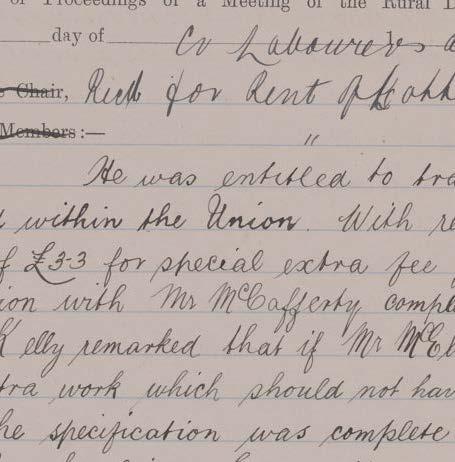 of Proceedings of a Meeting of the Rural D
day of Cr Labourers a
Chair, for Rent of
Members:—
"
He was entitled to tra
within the Union. With re
f £3-3 for special extra fee
ion with Mr McCafferty compl
Kelly remarked that if Mr McEl
tra work which should not hav
he specification was complete